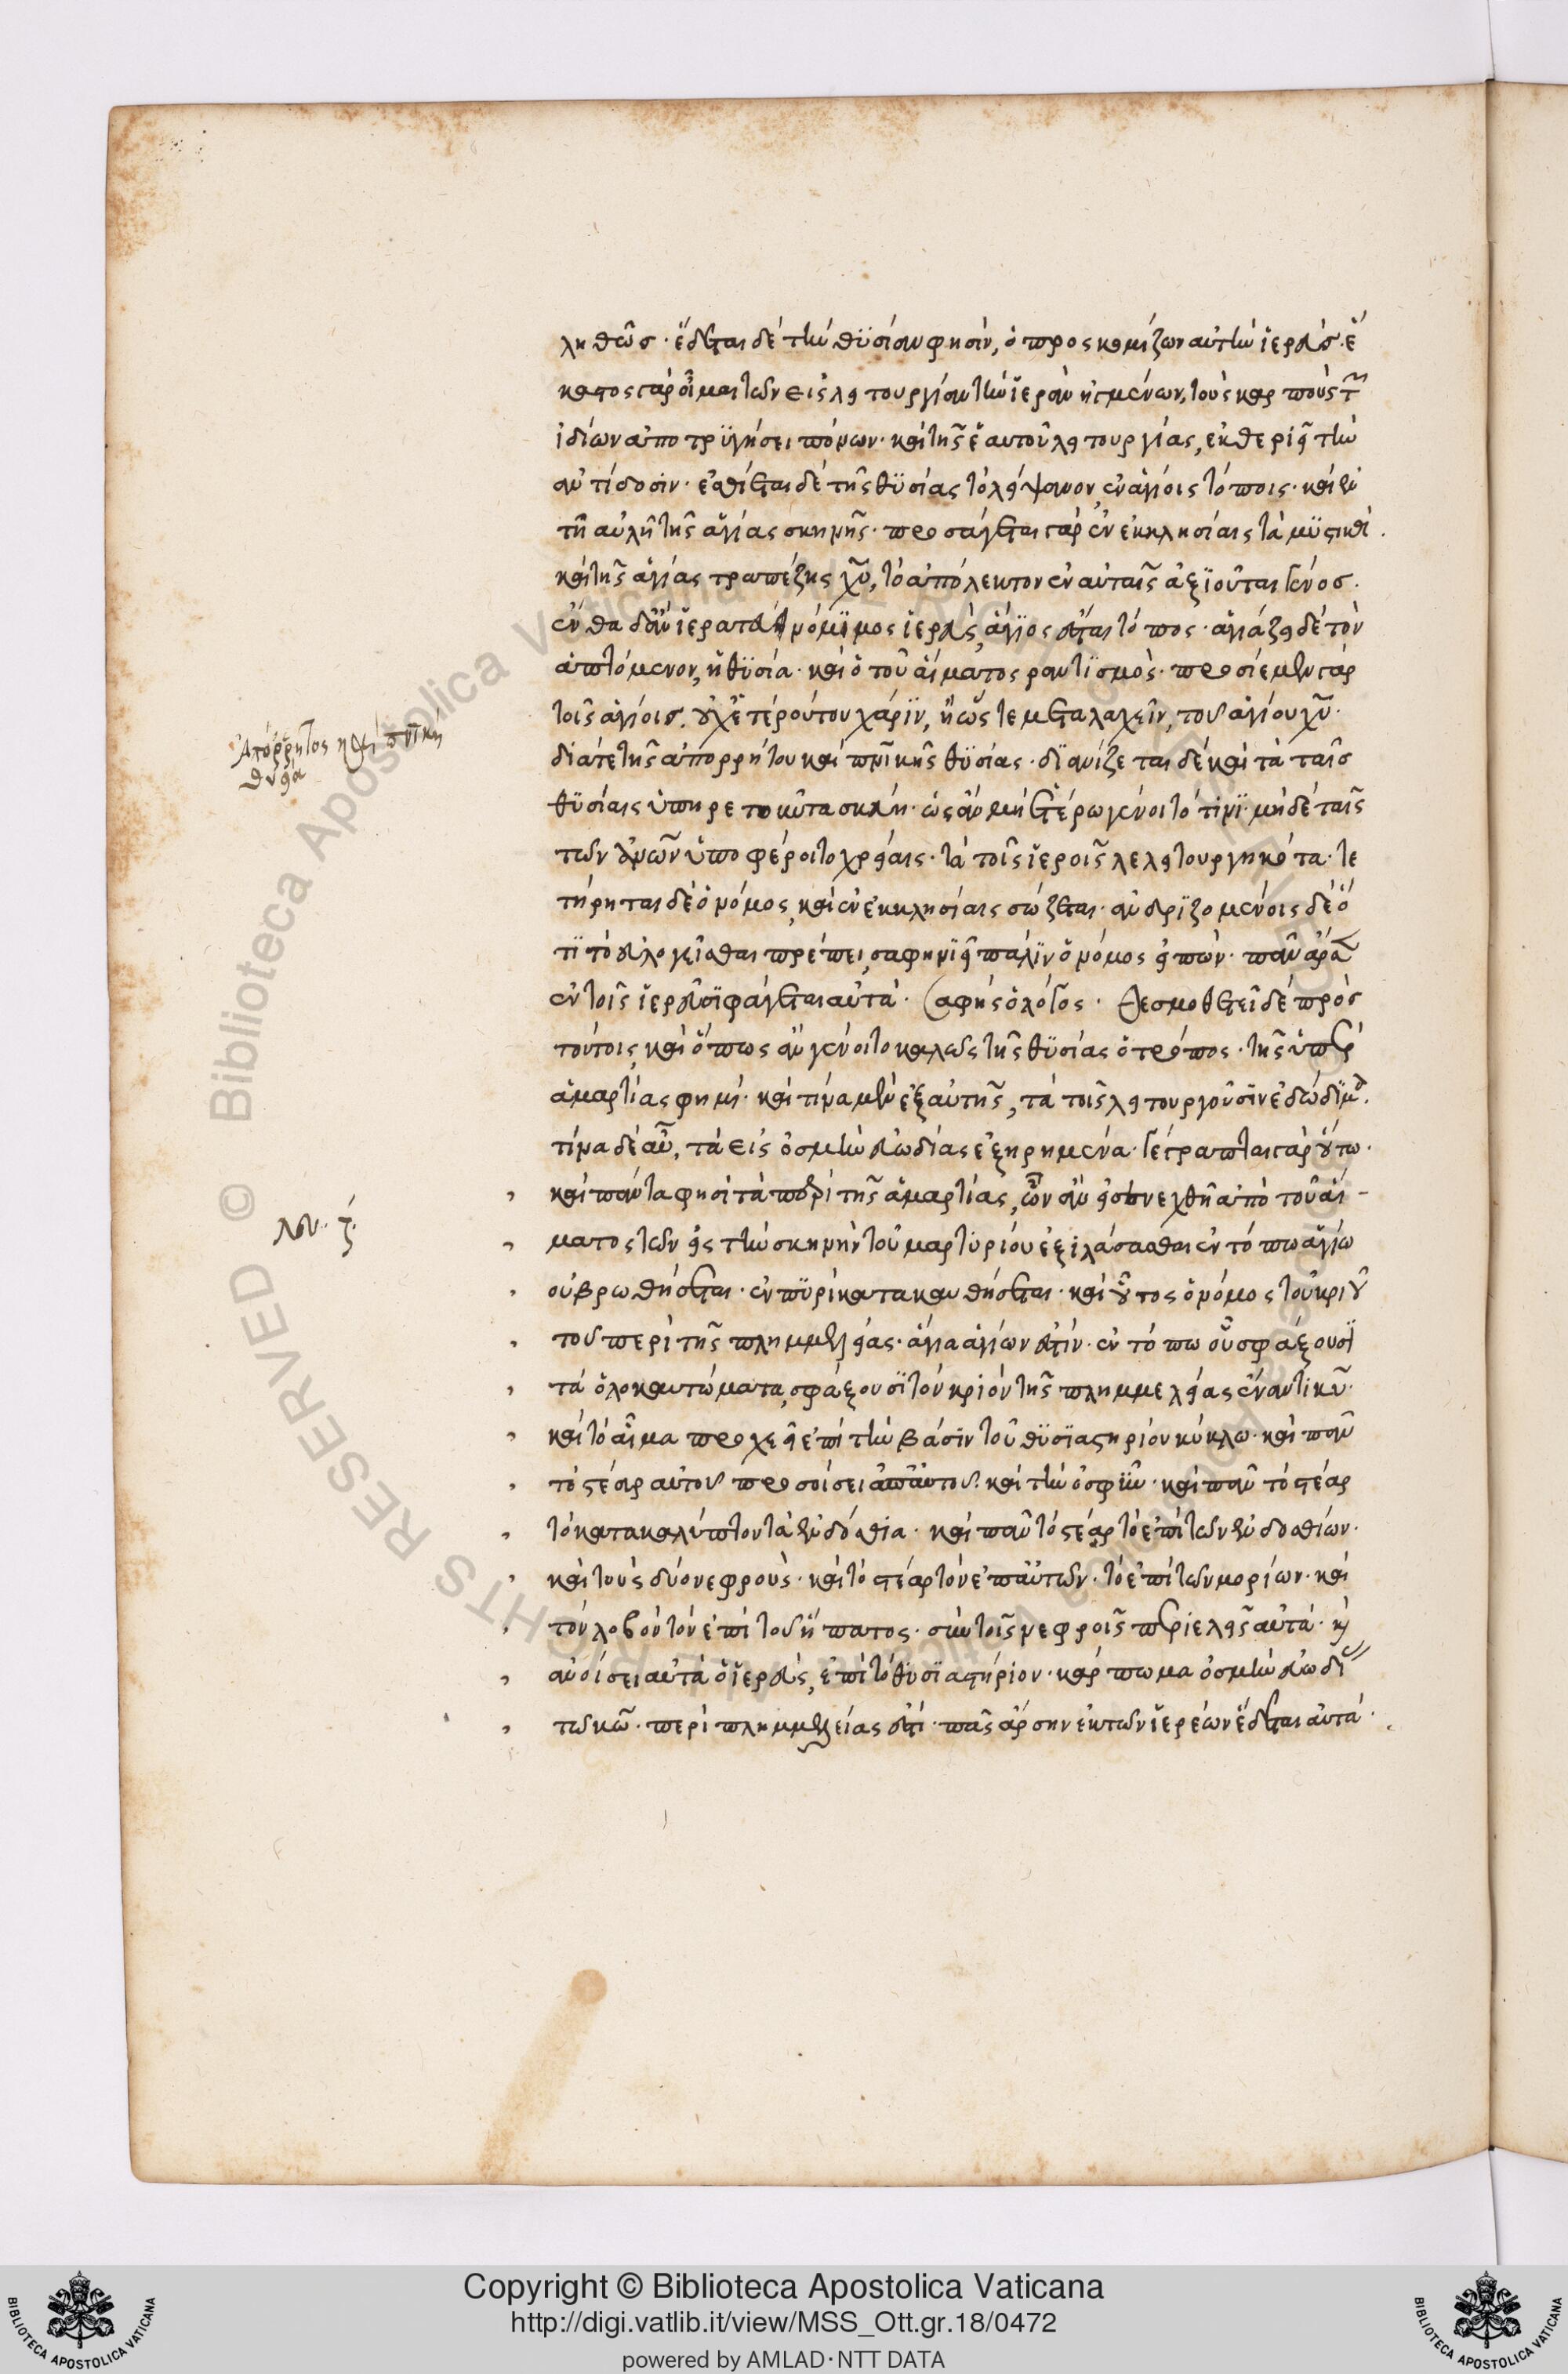 ληθῶς· ἔδεται δὲ τὴν θυσίαν φησὶν, ὁ προσκομίζων αὐτὴν ἱερεύς. ἕ
καστος γὰρ οἶμαι τῶν εἰς λειτουργίαν τὴν ἱερὰν ἡγμένων, τοὺς καρποὺς τῶν
ἰδίων ἀποτρυγήσει πόνων· καὶ τῆς ἑαυτοῦ λειτουργίας, ἐκθεριεῖ τὴν
ἀντίδοσιν· ἐσθίεται δὲ τῆς θυσίας τὸ λείψανον, ἐν ἁγίοις τόποις· καὶ ἐν
τῇ αὐλῇ τῆς ἁγίας σκηνῆς· προσάγεται γὰρ ἐν ἐκκλησίαις τὰ μυστικὰ.
καὶ τῆς ἁγίας τραπέζης χῦ, τὸ ἀπόλεκτον ἐν αὐταῖς ἀξιοῦται γένος.
ἔνθα δ' ἂν ἱερατεύῃ νόμιμος ἱερεὺς, ἅγιος ἔσται τόπος· ἁγιάζει δὲ τὸν
ἁπτόμενον, ἡ θυσία· καὶ ὁ τοῦ αἵματος ῥαντισμὸς· πρόσιεμεν γὰρ
τοῖς ἁγίοις. οὐχ ἑτέρου του χάριν, ἢ ὥστε μεταλαχεῖν, τοῦ ἁγίου χῦ·
διά τε τῆς ἀπορρήτου καὶ πνικῆς θυσίας· διανίζεται δὲ καὶ τὰ ταῖς
θυσίαις ὑπηρετοῦντα σκεύη· ὡς ἂν μὴ ἑτέρῳ γένοιτό τινι· μηδὲ ταῖς
τῶν ἀνῶν ὑποφέροιτο χρείαις· τὰ τοῖς ἱεροῖς λελειτουργηκότα· τε
τήρηται δὲ ὁ νόμος, καὶ ἐν ἐκκλησίαις σώζεται· ἀνδριζομένοις δὲ ὅ
τι τὸ εὐλογεῖσθαι πρέπει, σαφηνιεῖ πάλιν ὁ νόμος εἰπών· πᾶν ἄρσεν
ἐν τοῖς ἱερεῦσι φάγεται αὐτά· Σαφὴς ὁ λόγος· Θεσμοθετεῖ δὲ πρὸς
τούτοις, καὶ ὅπως ἂν γένοιτο καλῶς τῆς θυσίας ὁ τρόπος· τῆς ὑπὲρ
ἁμαρτίας φημι· καὶ τίνα μὲν ἐξ αὐτῆς, τὰ τοῖς λειτουργοῦσιν ἐδώδιμα.
τίνα δὲ αὖ, τὰ εἰς ὀσμὴν εὐωδίας ἐξῃρημένα· γέγραπται γὰρ οὕτω·
καὶ πάντα φησὶ τὰ περὶ τῆς ἁμαρτίας, ὧν ἂν εἰσενεχθῇ ἀπὸ τοῦ αἵ-
ματος τῶν εἰς τὴν σκηνὴν τοῦ μαρτυρίου ἐξιλάσασθαι ἐν τόπω ἁγίω
οὐ βρωθήσεται· ἐν πυρὶ κατακαυθήσεται· καὶ οὗτος ὁ νόμος τοῦ κριοῦ
τοῦ περὶ τῆς πλημμελείας· ἅγια ἁγίων ἐστίν· ἐν τόπω οὗ σφάξουσι
τὰ ὁλοκαυτώματα, σφάξουσι τὸν κριὸν τῆς πλημμελείας ἔναντι κῦ·
καὶ τὸ αἷμα προχεεῖ ἐπὶ τὴν βάσιν τοῦ θυσιαστηρίου κύκλω· καὶ πᾶν
τὸ στέαρ αὐτοῦ προσοίσει ἀπ' αὐτοῦ· καὶ τὴν ὀσφῦν· καὶ πᾶν τὸ στέαρ
τὸ κατακαλύπτον τὰ ἐνδόσθια· καὶ πᾶν τὸ στέαρ τὸ ἐπὶ τῶν ἐνδοσθίων·
καὶ τοὺς δύο νεφροὺς· καὶ τὸ στέαρ τὸ ἐπ' αὐτῶν· τὸ ἐπὶ τῶν μορίων· καὶ
τὸν λοβὸν τὸν ἐπὶ τοῦ ἥπατος· σὺν τοῖς νεφροῖς περιελεῖς αὐτά· καὶ
ἀνοίσει αὐτὰ ὁ ἱερεὺς, ἐπὶ τὸ θυσιαστήριον· κάρπωμα ὀσμὴν εὐωδί
τῶ κῶ· περὶ πλημμελείας ἐστί· πᾶς ἄρσην ἐκ τῶν ἱερέων ἔδεται αὐτά·
Ἀπόρρητος καὶ πνικὴ
θυσία
Λευ. ζ.
Copyright © Biblioteca Apostolica Vaticana
http://digi.vatlib.it/view/MSS_Ott.gr.18/0472
powered by AMLAD·NTT DATA